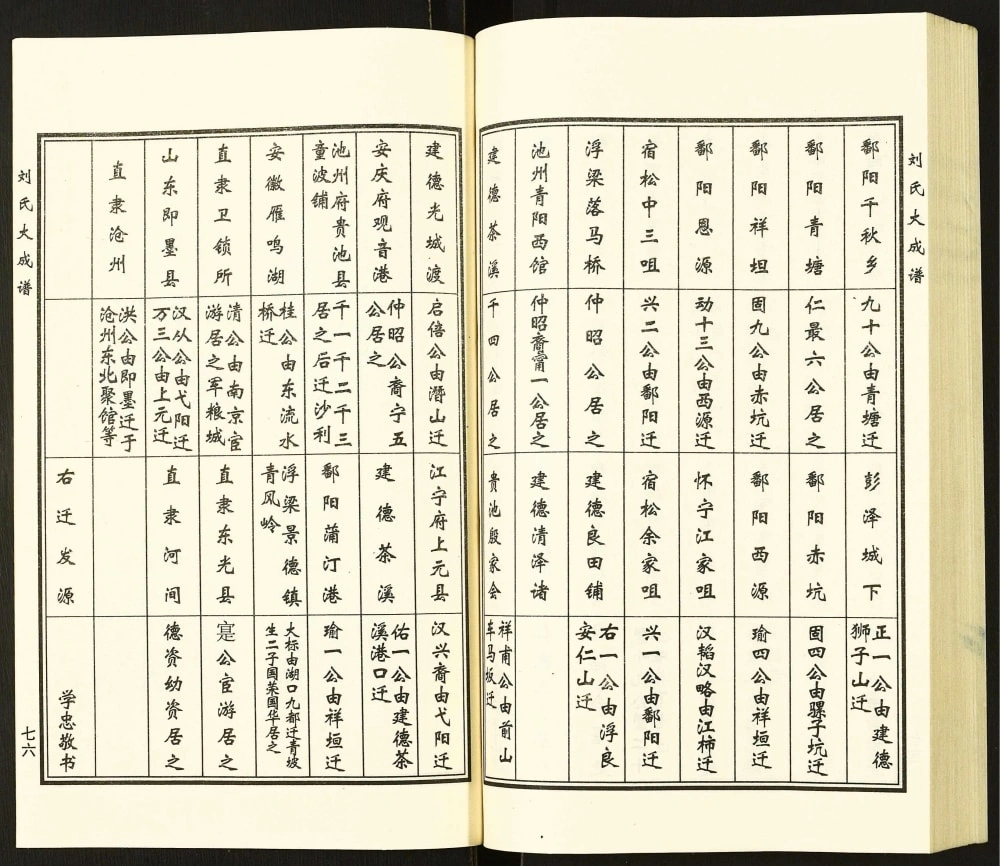 刘氏大成谱
鄱阳千秋乡
九十公由青塘迁
彭泽城下
正一公由建德
狮子山迁
鄱阳青塘
仁最六公居之
鄱阳赤坑
固四公由骡子坑迁
鄱阳祥坦
固九公由赤坑迁
鄱阳西源
瑜四公由祥垣迁
鄱阳恩源
动十三公由西源迁
怀宁江家咀
汉韬汉略由江柿迁
宿松中三咀
兴二公由鄱阳迁
宿松余家咀
兴一公由鄱阳迁
浮梁落马桥
仲昭公居之
建德良田铺
右一公由浮良
安仁山迁
池州青阳西馆
仲昭裔甯一公居之
建德清泽诸
建德茶溪
千四公居之
贵池殷家会
祥甫公由前山
车马坂迁
建德光城渡
启倍公由潜山迁
江宁府上元县
汉兴裔由弋阳迁
安庆府观音港
仲昭公裔宁五
公居之
建德茶溪
佑一公由建德茶
溪港口迁
池州府贵池县
童波铺
千一千二千三
居之后迁沙利
鄱阳蒲汀港
瑜一公由祥垣迁
安徽雁鸣湖
桂公由东流水
桥迁
浮梁景德镇
青风岭
大标由湖口九都迁青坡
生二子国荣国华居之
直隶卫锁所
清公由南京宦
游居之军粮城
直隶东光县
寔公宦游居之
山东即墨县
汉从公由弋阳迁
万三公由上元迁
直隶河间
德资幼资居之
直隶沧州
洪公由即墨迁于
沧州东北聚馆等
右迁发源
学忠敬书
刘氏大成谱
七六